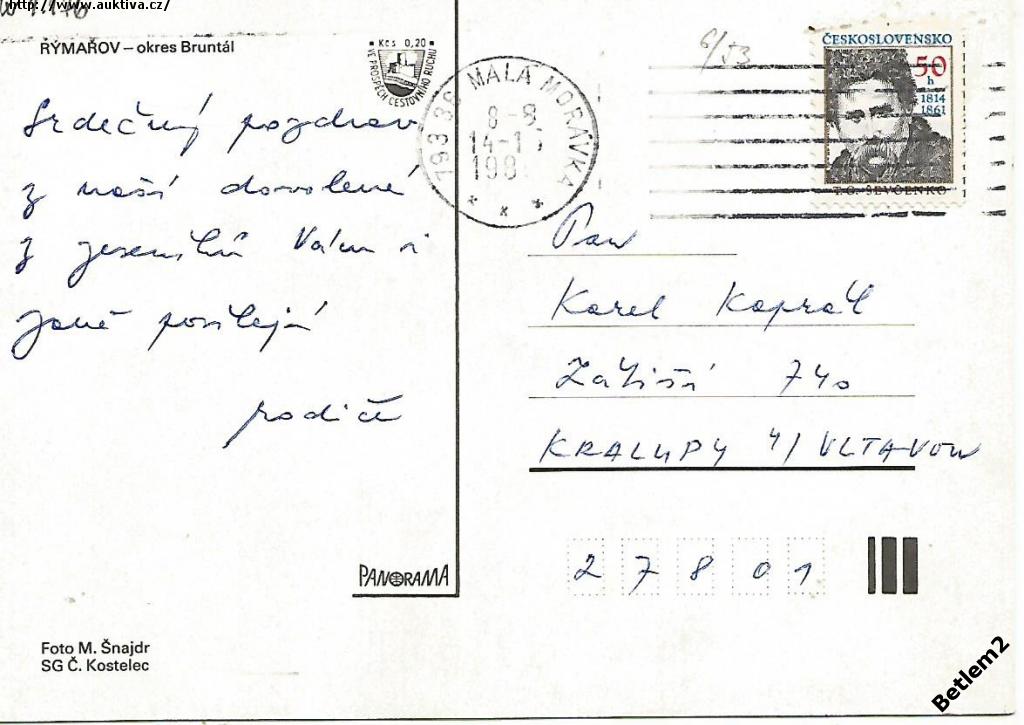 http://www.auktiva.cz/
RÝMAŘOV – okres Bruntál
Kčs 0,20
VE PROSPĚCH CESTOVNÍHO RUCHU
Srdečný pozdrav
z naší dovolené
z Jeseníků Vám i
Janě posílají
rodiče
PANORAMA
Foto M. Šnajdr
SG Č. Kostelec
793 36 MALÁ MORÁVKA
8-8
14-15
198
6/53
ČESKOSLOVENSKO
50
h
1814
1861
T.G. ŠEVČENKO
Pan
Karel Kaprál
Zátiší 740
KRALUPY n/ VLTAVOU
27801
Betlem2